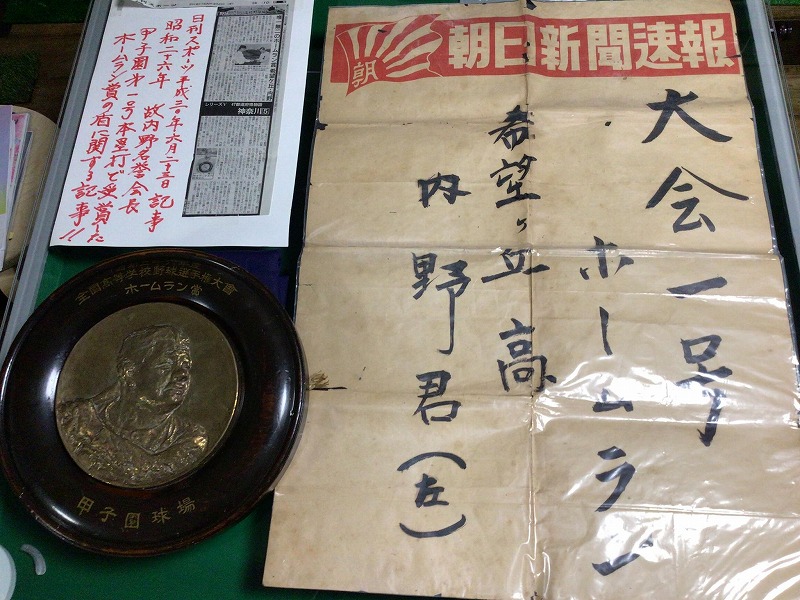 朝日新聞速報
朝
大会一号
ホームラン
希望ヶ丘高
内野君(左)
日刊スポーツ平成三〇年六月二十三日記事
昭和二十六年 故内野名誉会長
甲子園第一号本塁打で受賞した
ホームラン賞の盾に関する記事!!
シリーズV 47都道府県物語
神奈川5
全国高等学校野球選手権大會
ホームラン賞
甲子園球場